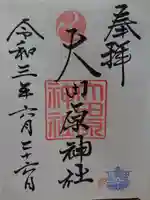 奉拝
天川原神社
令和三年六月二十六日